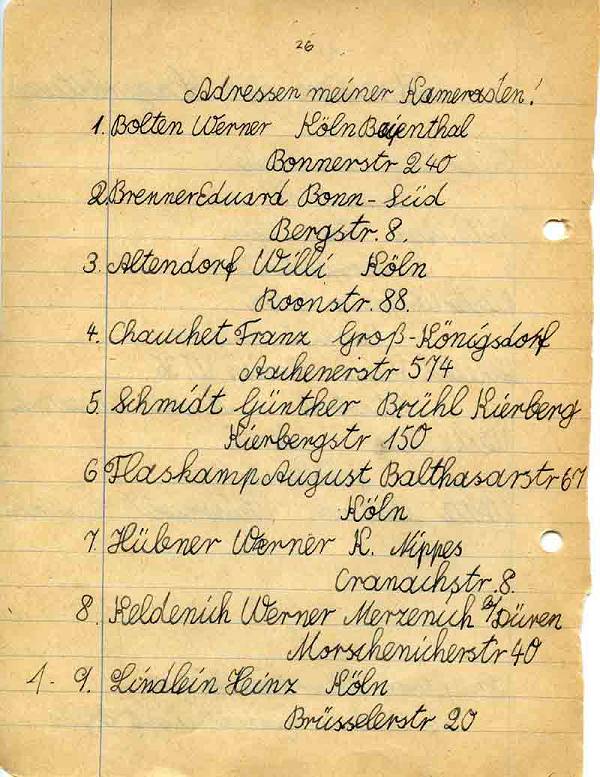 26
Adressen meiner Kameraden!
1. Bolten Werner Köln Bayenthal
Bonnerstr 240
2. Brenner Eduard Bonn-Süd
Bergstr. 8.
3. Altendorf Willi Köln
Roonstr. 88.
4. Chauchet Franz Groß-Königsdorf
Aachenerstr 574
5. Schmidt Günther Brühl Kierberg
Kierbergstr 150
6 Flaskamp August Balthasarstr 67
Köln
7. Hübner Werner K. Nippes
Cranachstr. 8.
8. Keldenich Werner Merzenich b/Düren
Morschenicherstr 40
1. - 9. Lindlein Heinz Köln
Brüsselerstr 20